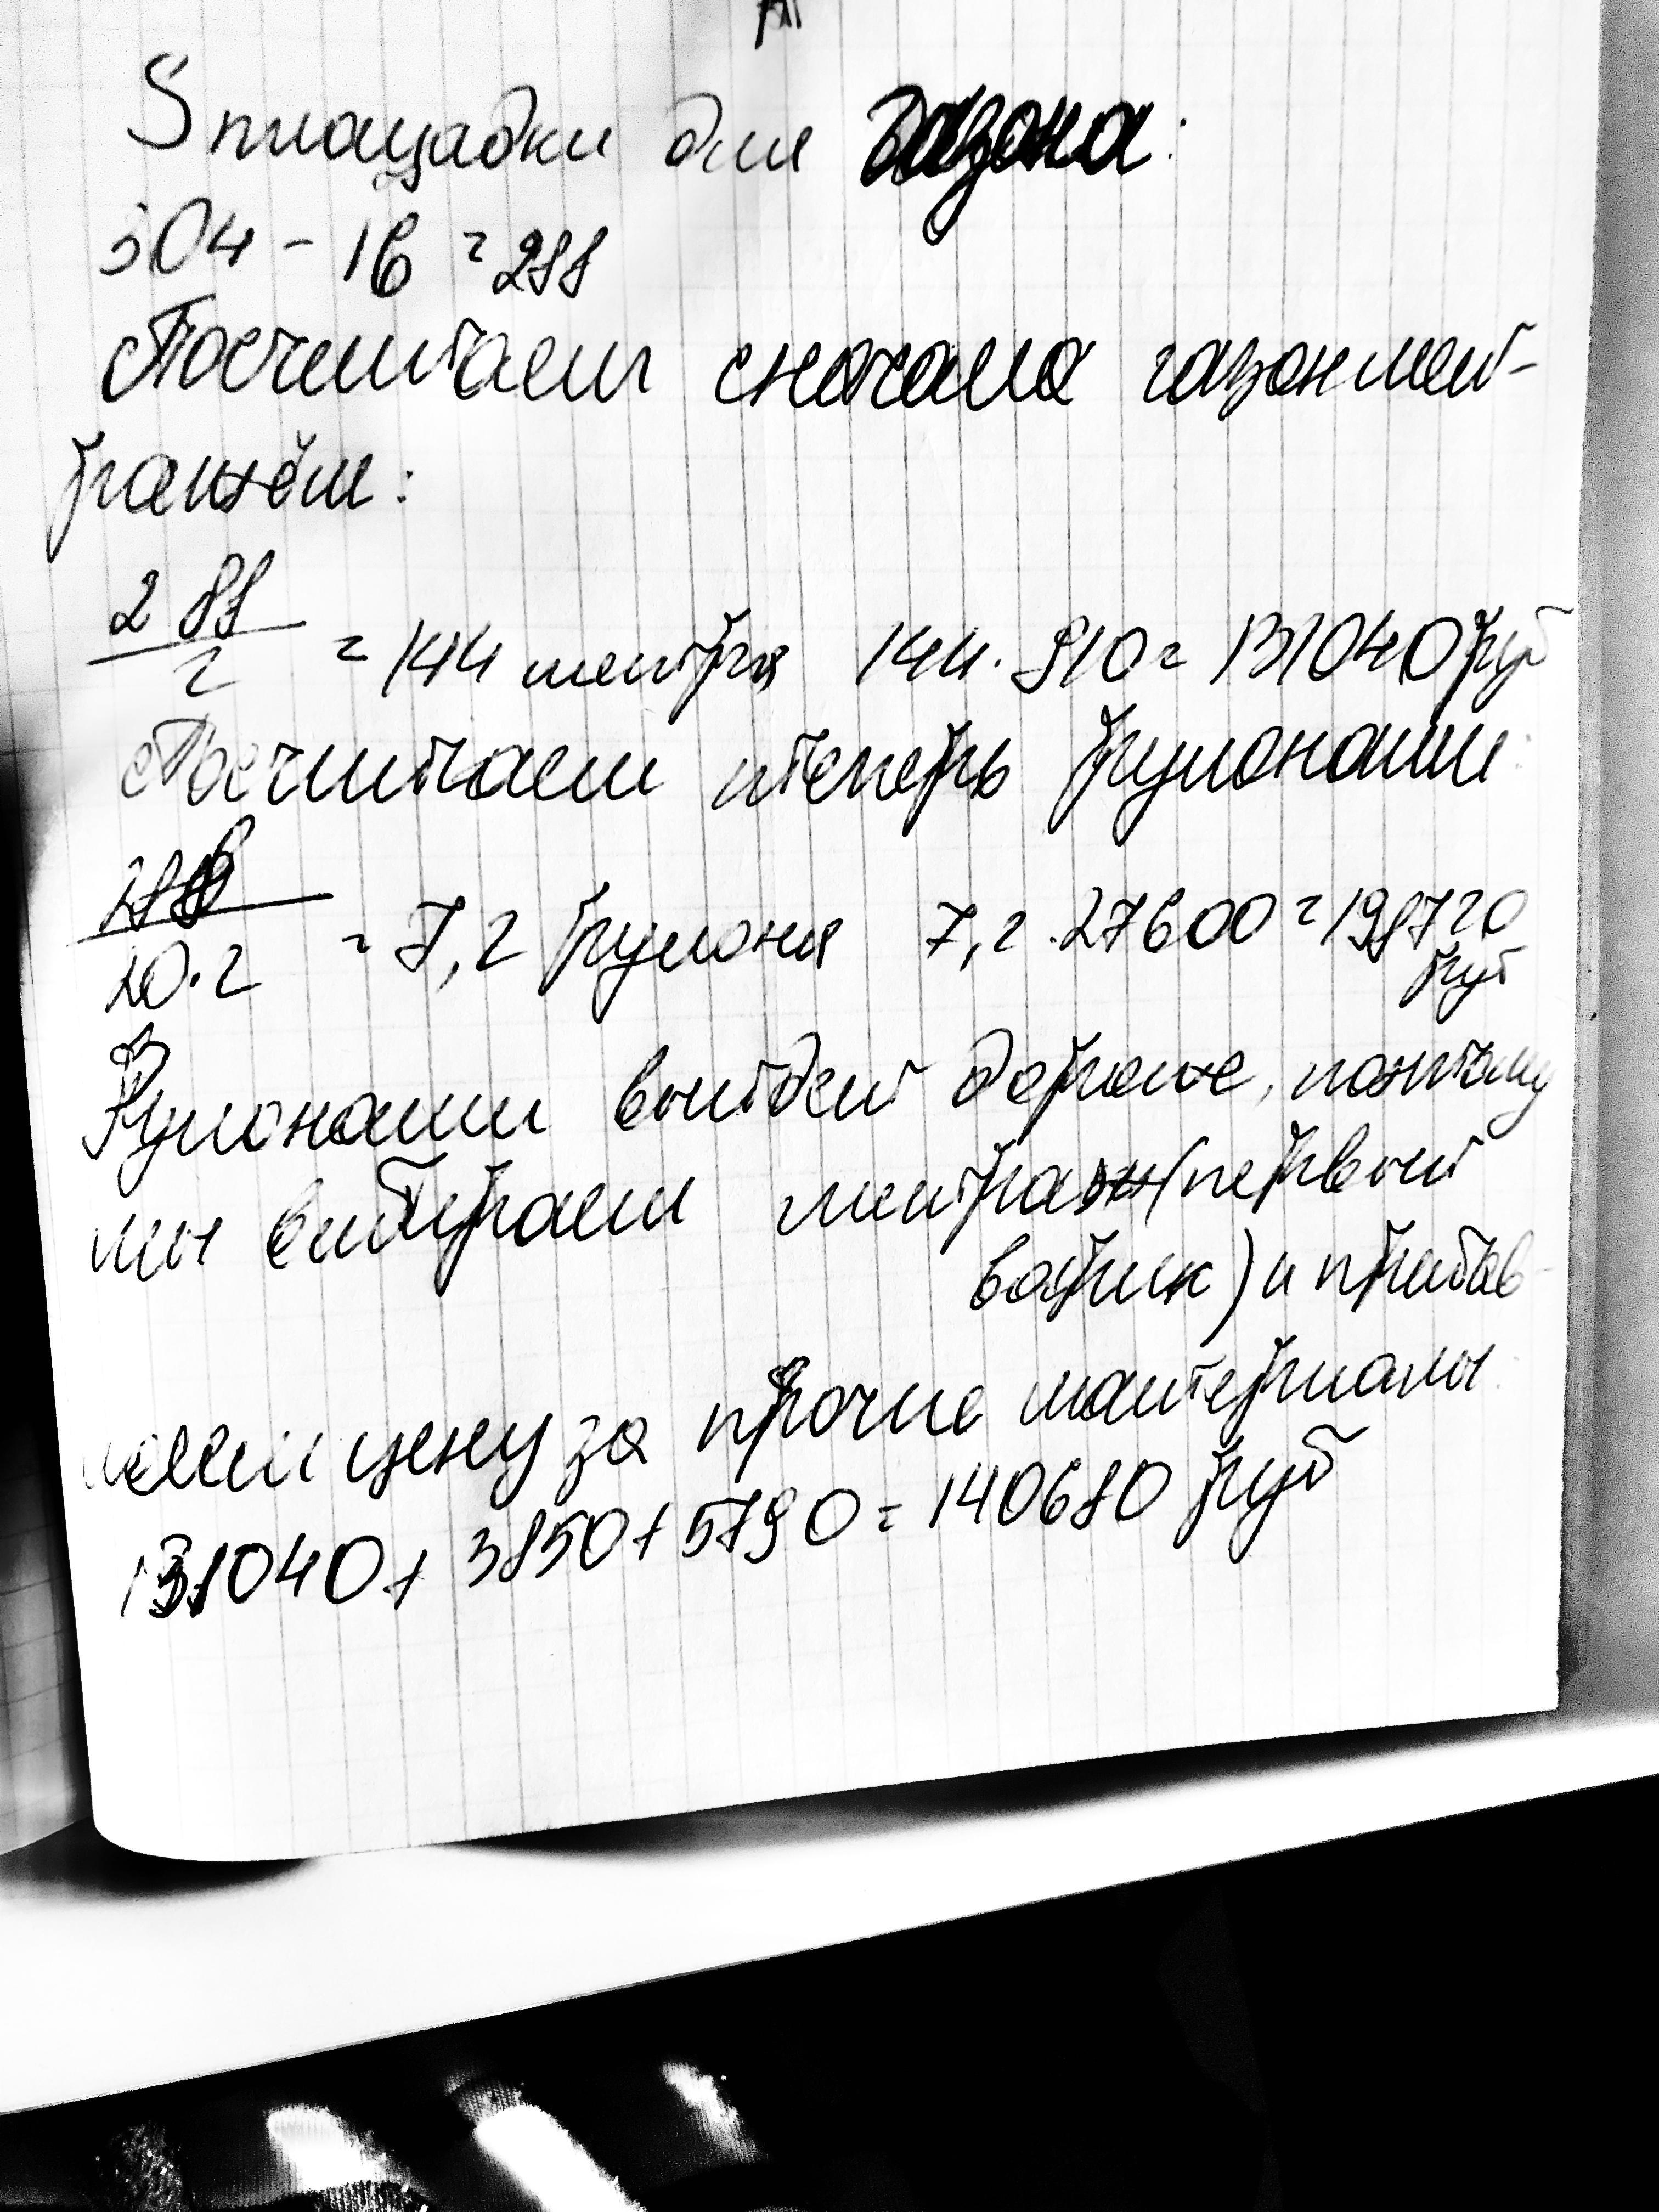 S площадки для газона:
304 - 16 = 288
Посчитаем сначала газон мет-
ражём:
288/2 = 144 метра 144 · 910 = 131040 руб
Посчитаем теперь рулонами:
288/20·2 = 7,2 рулона 7,2 · 27600 = 198720 руб
Рулонами выйдет дороже, поэтому
мы выбираем метраж (первый
варик) и прибав-
ляем цену за прочие материалы:
131040 + 3850 + 5790 = 140680 руб